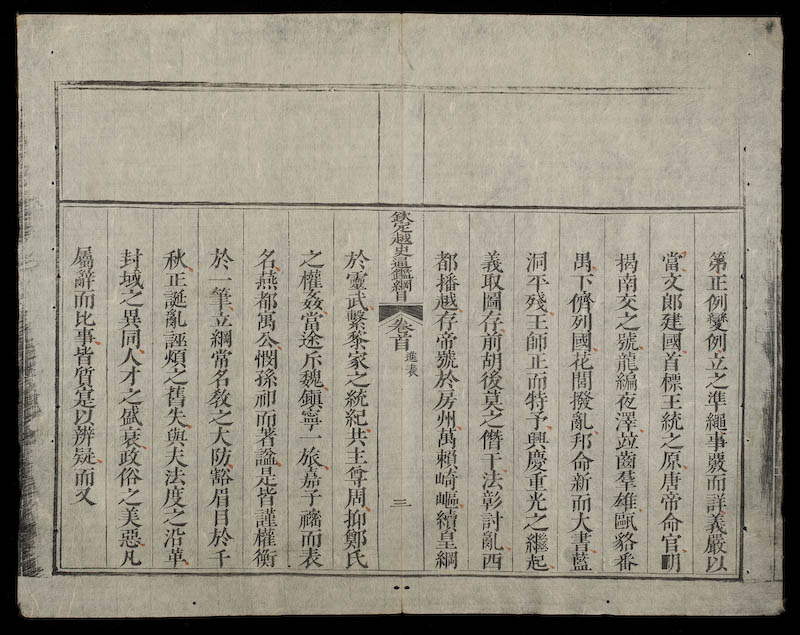 第正例變例立之準繩事覈而詳義嚴以
當文郎建國首標王統之原唐帝命官明
揭南交之號龍編夜澤竝齒羣雄甌貉番
禺下儕列國花閭撥亂邦命新而大書藍
洞平殘王師正而特予興慶重光之繼起
義取圖存前胡後莫之僭干法彰討亂西
都播越存帝號於房州萬賴崎嶇續皇綱
欽定越史通鑑綱目 卷首 進表 三
於靈武繫黎家之統紀共主尊周抑鄭氏
之權姦當途斥魏鎭寧一旅嘉子禠而表
名燕都寓公憫孫礽而著諡是皆謹權衡
於一筆立綱常名敎之大防豁眉目於千
秋正誕亂誣煩之舊失與夫法度之沿革
封域之異同人才之盛衰政俗之美惡凡
屬辭而比事皆質寔以辨疑而又